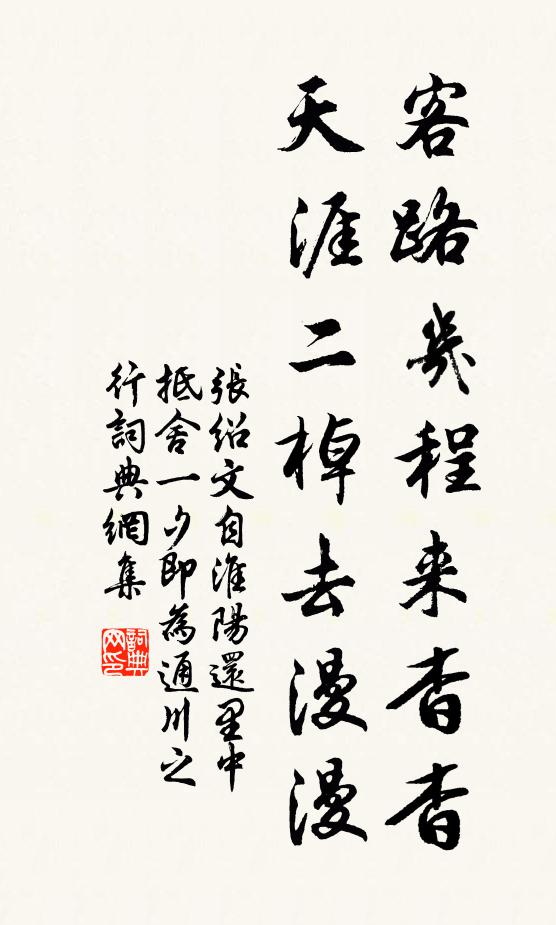 客路幾程来杳杳
天涯二棹去漫漫
張紹文自淮陽還里中
抵舍一夕即為通川之
行詞典網集
詞典网印